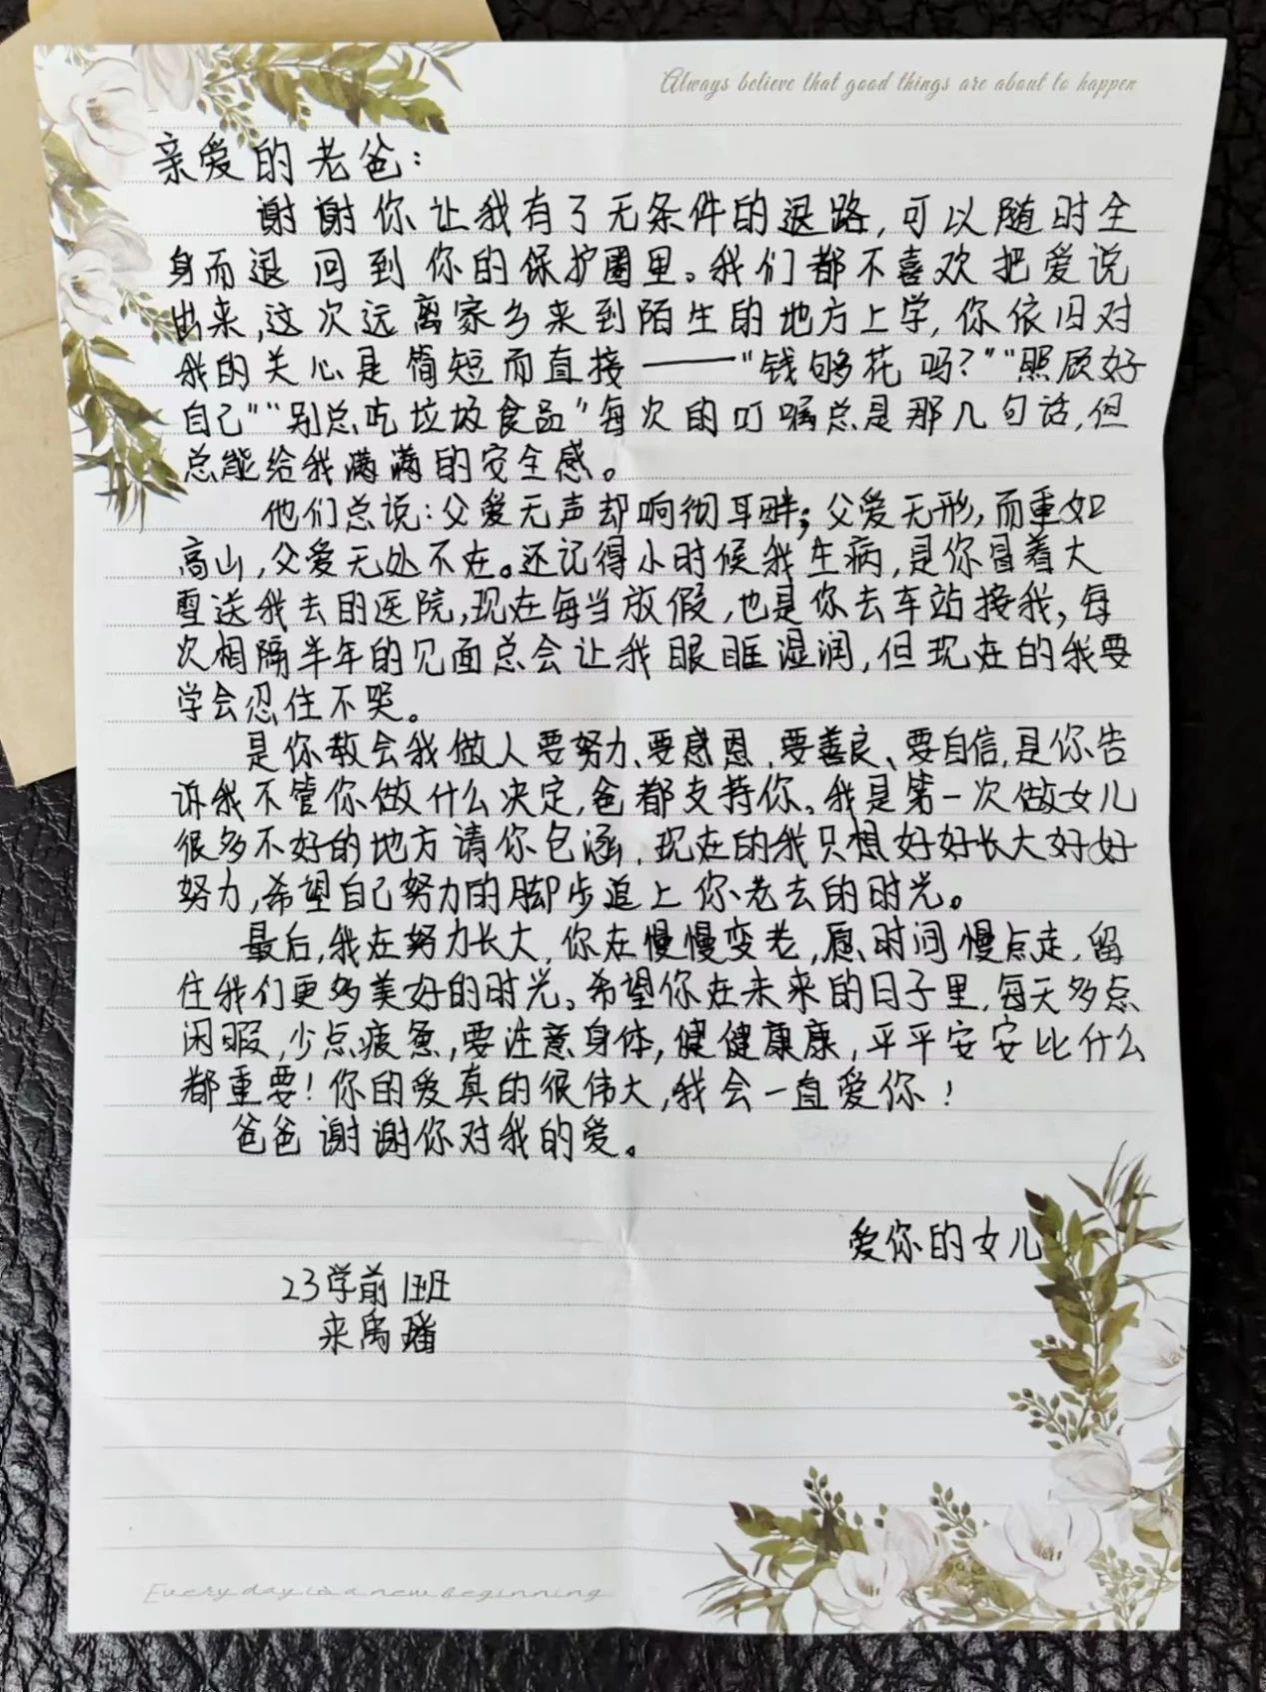 Always believe that good things are about to happen
亲爱的老爸：
谢谢你让我有了无条件的退路，可以随时全
身而退 回到你的保护圈里。我们都不喜欢把爱说
出来，这次远离家乡来到陌生的地方上学，你依旧对
我的关心是简短而直接——“钱够花吗？”“照顾好
自己”“别总吃垃圾食品”每次的叮嘱总是那几句话，但
总能给我满满的安全感。
他们总说：父爱无声却响彻耳畔；父爱无形，而重如
高山，父爱无处不在。还记得小时候我生病，是你冒着大
雪送我去的医院，现在每当放假，也是你去车站接我，每
次相隔半年的见面总会让我眼眶湿润，但现在的我要
学会忍住不哭。
是你教会我做人要努力、要感恩、要善良、要自信，是你告
诉我不管你做什么决定，爸都支持你。我是第一次做女儿
很多不好的地方请你包涵，现在的我只想好好长大好好
努力，希望自己努力的脚步追上你老去的时光。
最后，我在努力长大，你在慢慢变老，愿时间慢点走，留
住我们更多美好的时光。希望你在未来的日子里，每天多点
闲暇，少点疲惫，要注意身体，健健康康，平平安安比什么
都重要！你的爱真的很伟大，我会一直爱你！
爸爸谢谢你对我的爱。
爱你的女儿
23学前1班
来禹璠
Every day is a new beginning